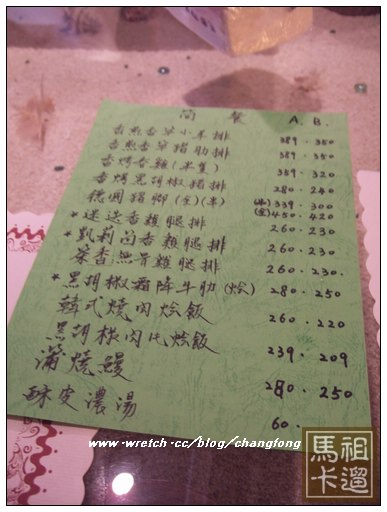 簡餐 A. B.
香煎香草小羊排 389 . 350
香煎香草豬肋排 389 . 350
香烤香雞(半隻) 359 . 320
香烤黑胡椒豬排 280 . 240
德國豬腳(全)(半) (半)339 . 300
(全)450 . 420
*迷迭香雞腿排 260 . 230
*凱莉茴香雞腿排 260 . 230
茶香無骨雞腿排 260 . 230.
*黑胡椒霜降牛肋(燴) 280 . 250
韓式燒肉燴飯 260 . 220
黑胡椒肉片燴飯 239 . 209
蒲燒鰻 280 . 250
酥皮濃湯 60 .
www.wretch.cc/blog/changfong
馬祖
卡遛